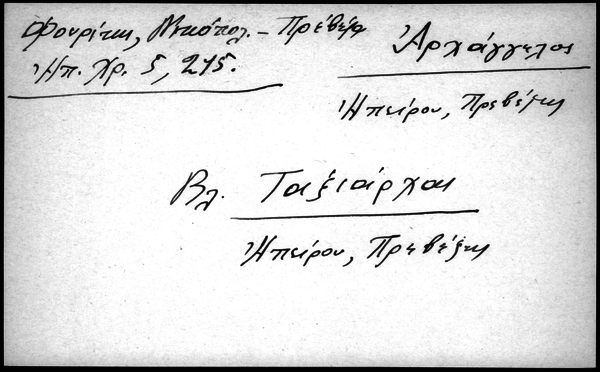 Φουρίκη, Νικόπολ. – Πρέβεζα
Ἠπ. Χρ. 5, 215.
Ἀρχάγγελος
Ἠπείρου, Πρεβέζης
Βλ. Ταξιάρχαι
Ἠπείρου, Πρεβέζης